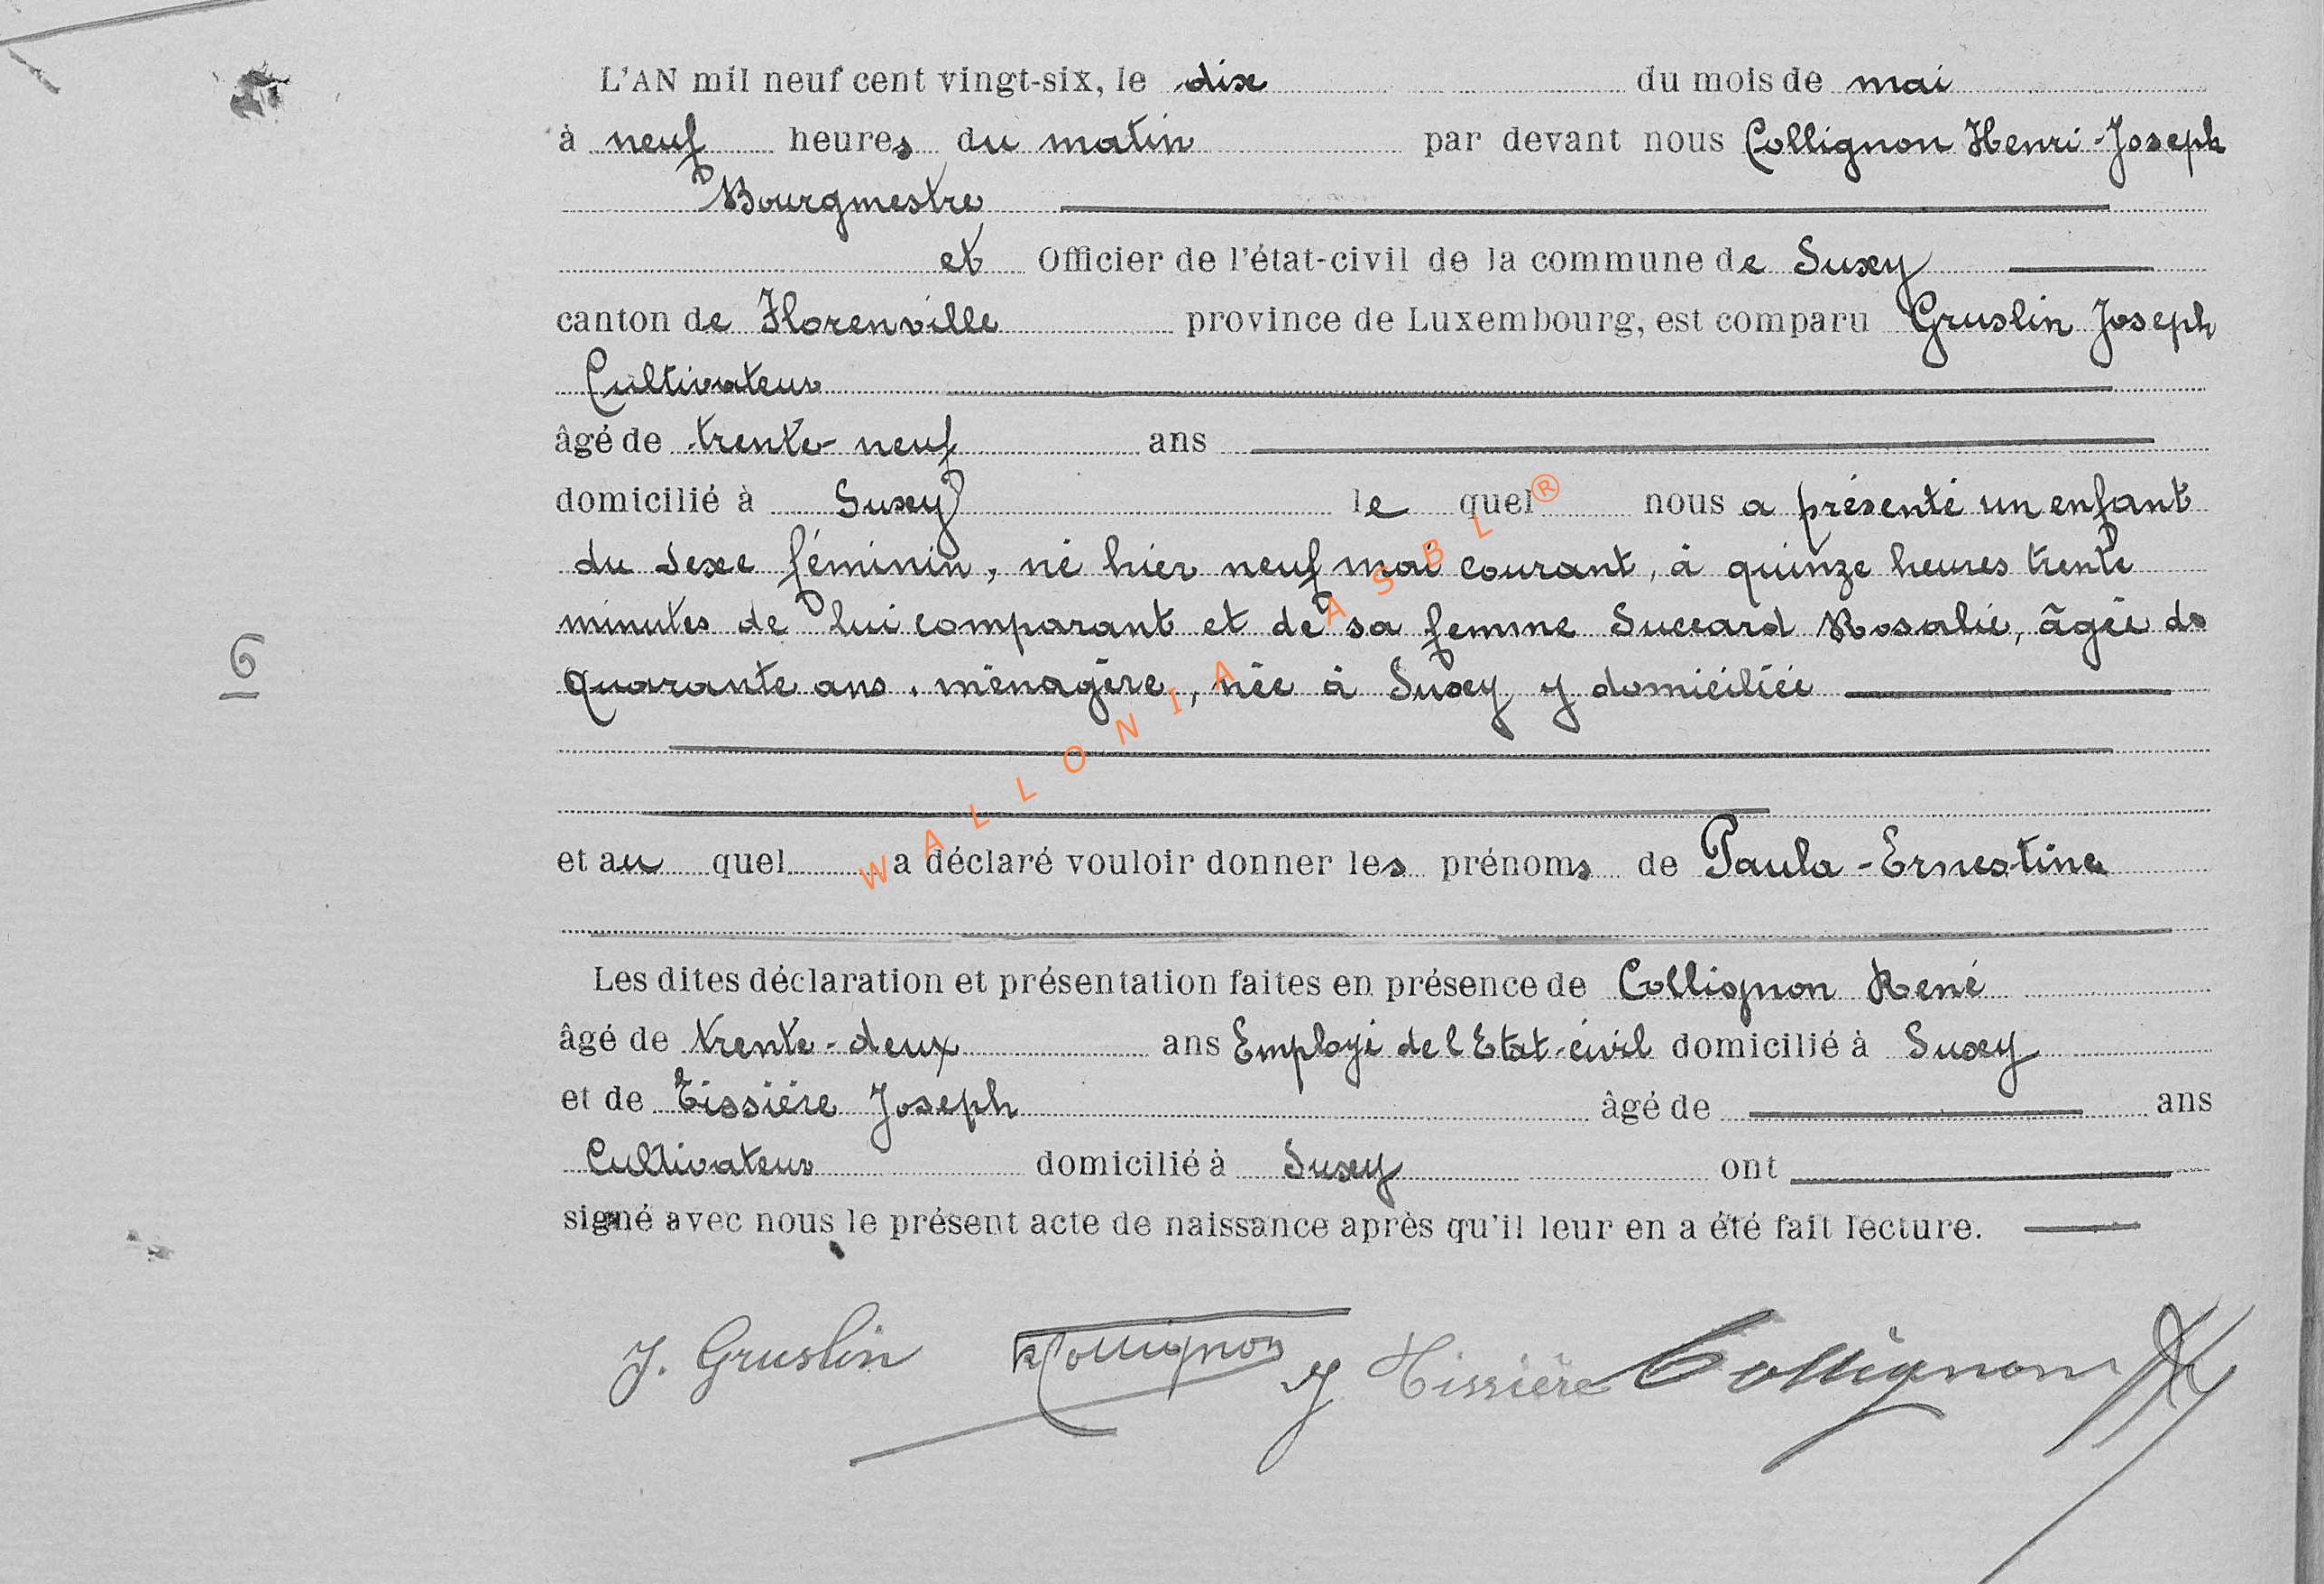 L'AN mil neuf cent vingt-six, le dix du mois de mai
à neuf heures du matin par devant nous Collignon Henri-Joseph
Bourgmestre
et Officier de l'état-civil de la commune de Suxy
canton de Florenville province de Luxembourg, est comparu Gruslin Joseph
Cultivateur
âgé de trente-neuf ans
domicilié à Suxy le quel nous a présenté un enfant
du sexe féminin, né hier neuf mai courant, à quinze heures trente
minutes de lui comparant et de sa femme Suceard Rosalie, âgée de
6 quarante ans, ménagère, née à Suxy y domiciliée
et au quel a déclaré vouloir donner les prénoms de Paula-Ernestine
Les dites déclaration et présentation faites en présence de Collignon René
âgé de trente-deux ans Employé de l Etat-civil domicilié à Suxy
et de Tissière Joseph âgé de ans
Cultivateur domicilié à Suxy ont
signé avec nous le présent acte de naissance après qu'il leur en a été fait lecture.
J. Gruslin R Collignon J Tissière Collignon
WALLONIA ASBL®